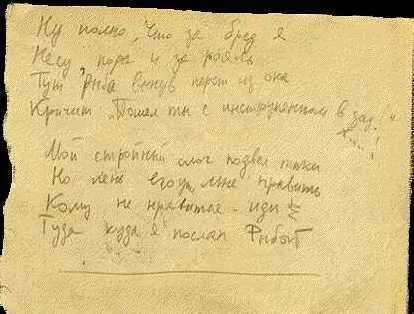 Ну полно, Что за бред я
Несу пора и за рояль
Тут рыба вынув перст из ока
Кричит „Пошел ты с инструментом в зад!"
Х....!
Мой стройный слог подвел
Но лень его мне править
Кому не нравится - иди
Туда куда я послан Рыбой